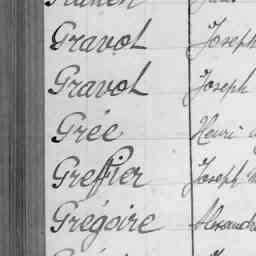 Gravot Joseph
Gravot Joseph
Grée Henri
Greffier Joseph
Grégoire Alexandre